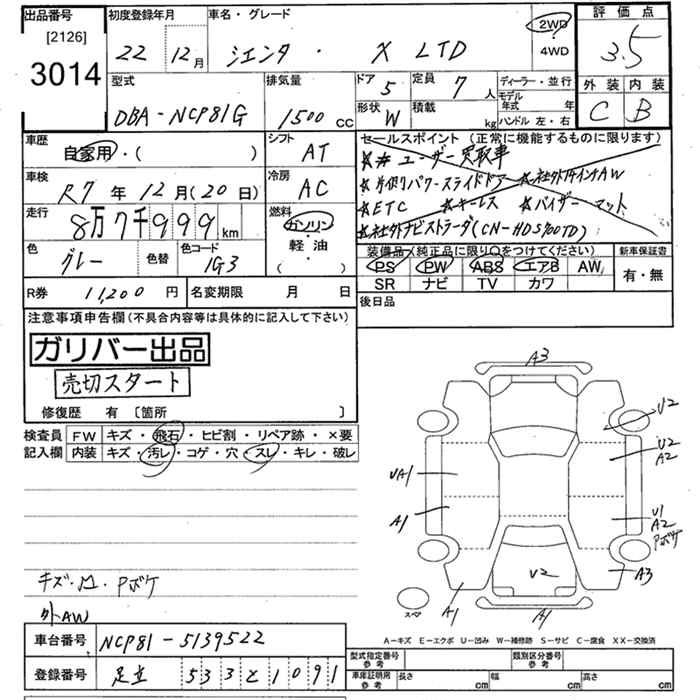 出品番号 [2126] 3014
初度登録年月 22年 12月
車名・グレード シエンタ ・ X LTD
2WD 4WD
評価点 3.5
外装 内装 C B
型式 DBA-NCP81G
排気量 1500 CC
ドア 5 定員 7人
形状 W 積載 kg
ディーラー・並行
モデル年式 年
ハンドル 左・右
車歴 自家用・( )
シフト AT
車検 R7年12月(20日)
冷房 AC
走行 8万7千999km
燃料 ガソリン 軽油 ( ・ )
色 グレー 色替 色コード 1G3
セールスポイント (正常に機能するものに限ります)
★★ユーザー買取車
★片側パワースライドドア ★社外14インチAW
★ETC ★キーレス ★バイザーマット
★社外ナビストラーダ(CN-HDS700TD)
装備品(純正品に限り○をつけてください) 新車保証書
PS PW ABS エアB AW
SR ナビ TV カワ
有・無
R券 11,200円 名変期限 月 日
後日品
注意事項申告欄(不具合内容等は具体的に記入して下さい)
ガリバー出品
売切スタート
修復歴 有 [箇所 ]
検査員記入欄
FW キズ・飛石・ヒビ割・リペア跡・×要
内装 キズ・汚レ・コゲ・穴・スレ・キレ・破レ
キズ・凹 Pボケ
外AW
A3
U2
U2 A2
UA1
A1
U1 A2 Pボケ
A3
U2
A1 A1
スペア
A-キズ E-エクボ U-凹み W-補修跡 S-サビ C-腐食 XX-交換済
車台番号 NCP81-5139522
登録番号 足立 533 と 1091
型式指定番号 参考 類別区分番号 参考
車庫証明用 参考 長さ cm 幅 cm 高さ cm